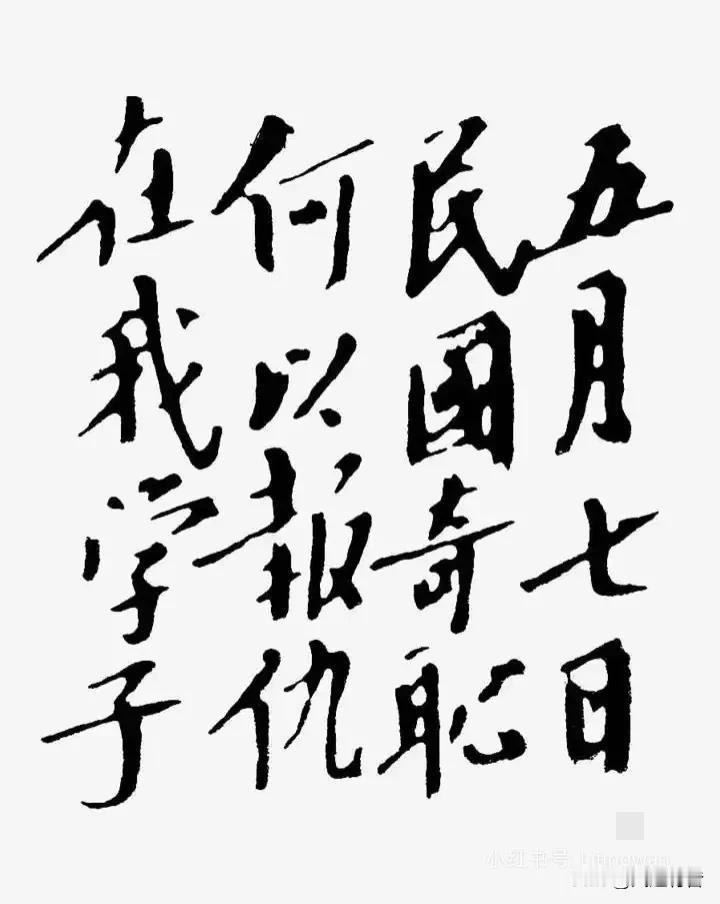 五月七日
民國奇恥
何以報仇
在我学子
小红书号